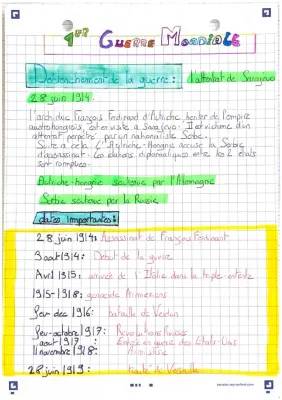 1ER GUERRE MONDIALE
Déclenchement de la guerre : l'attentat de Sarajevo
28 juin 1914.
l'archiduc François Ferdinand d'Autriche heritier de l'empire
austro-hongrois, est en visite à Sarajevo. Il est victime d'un
attentat perpetré par un nationaliste Serbe.
Suite a cela l'Autriche-Hongrie accuse la Serbie
d'assassinat. Les relations diplomatiques entre les 2 états
sont rompues.
Autriche-hongrie soutenue par l'Allemagne
Serbie soutenue par la Russie
dates importantes :
28 juin 1914 : Assassinat de François Ferdinand
3 aout 1914 : Début de la guerre
Avril 1915 : arrivée de l'Italie dans la triple entente
1915-1918 : genocide Armeniens
fev-dec 1916 : bataille de Verdun
fev-octobre 1917 : Revolutions Russes
aout 1917 : Entrée en guerre des Etats-Unis
11 novembre 1918 : Armistice
28 juin 1919 : traité de Versaille